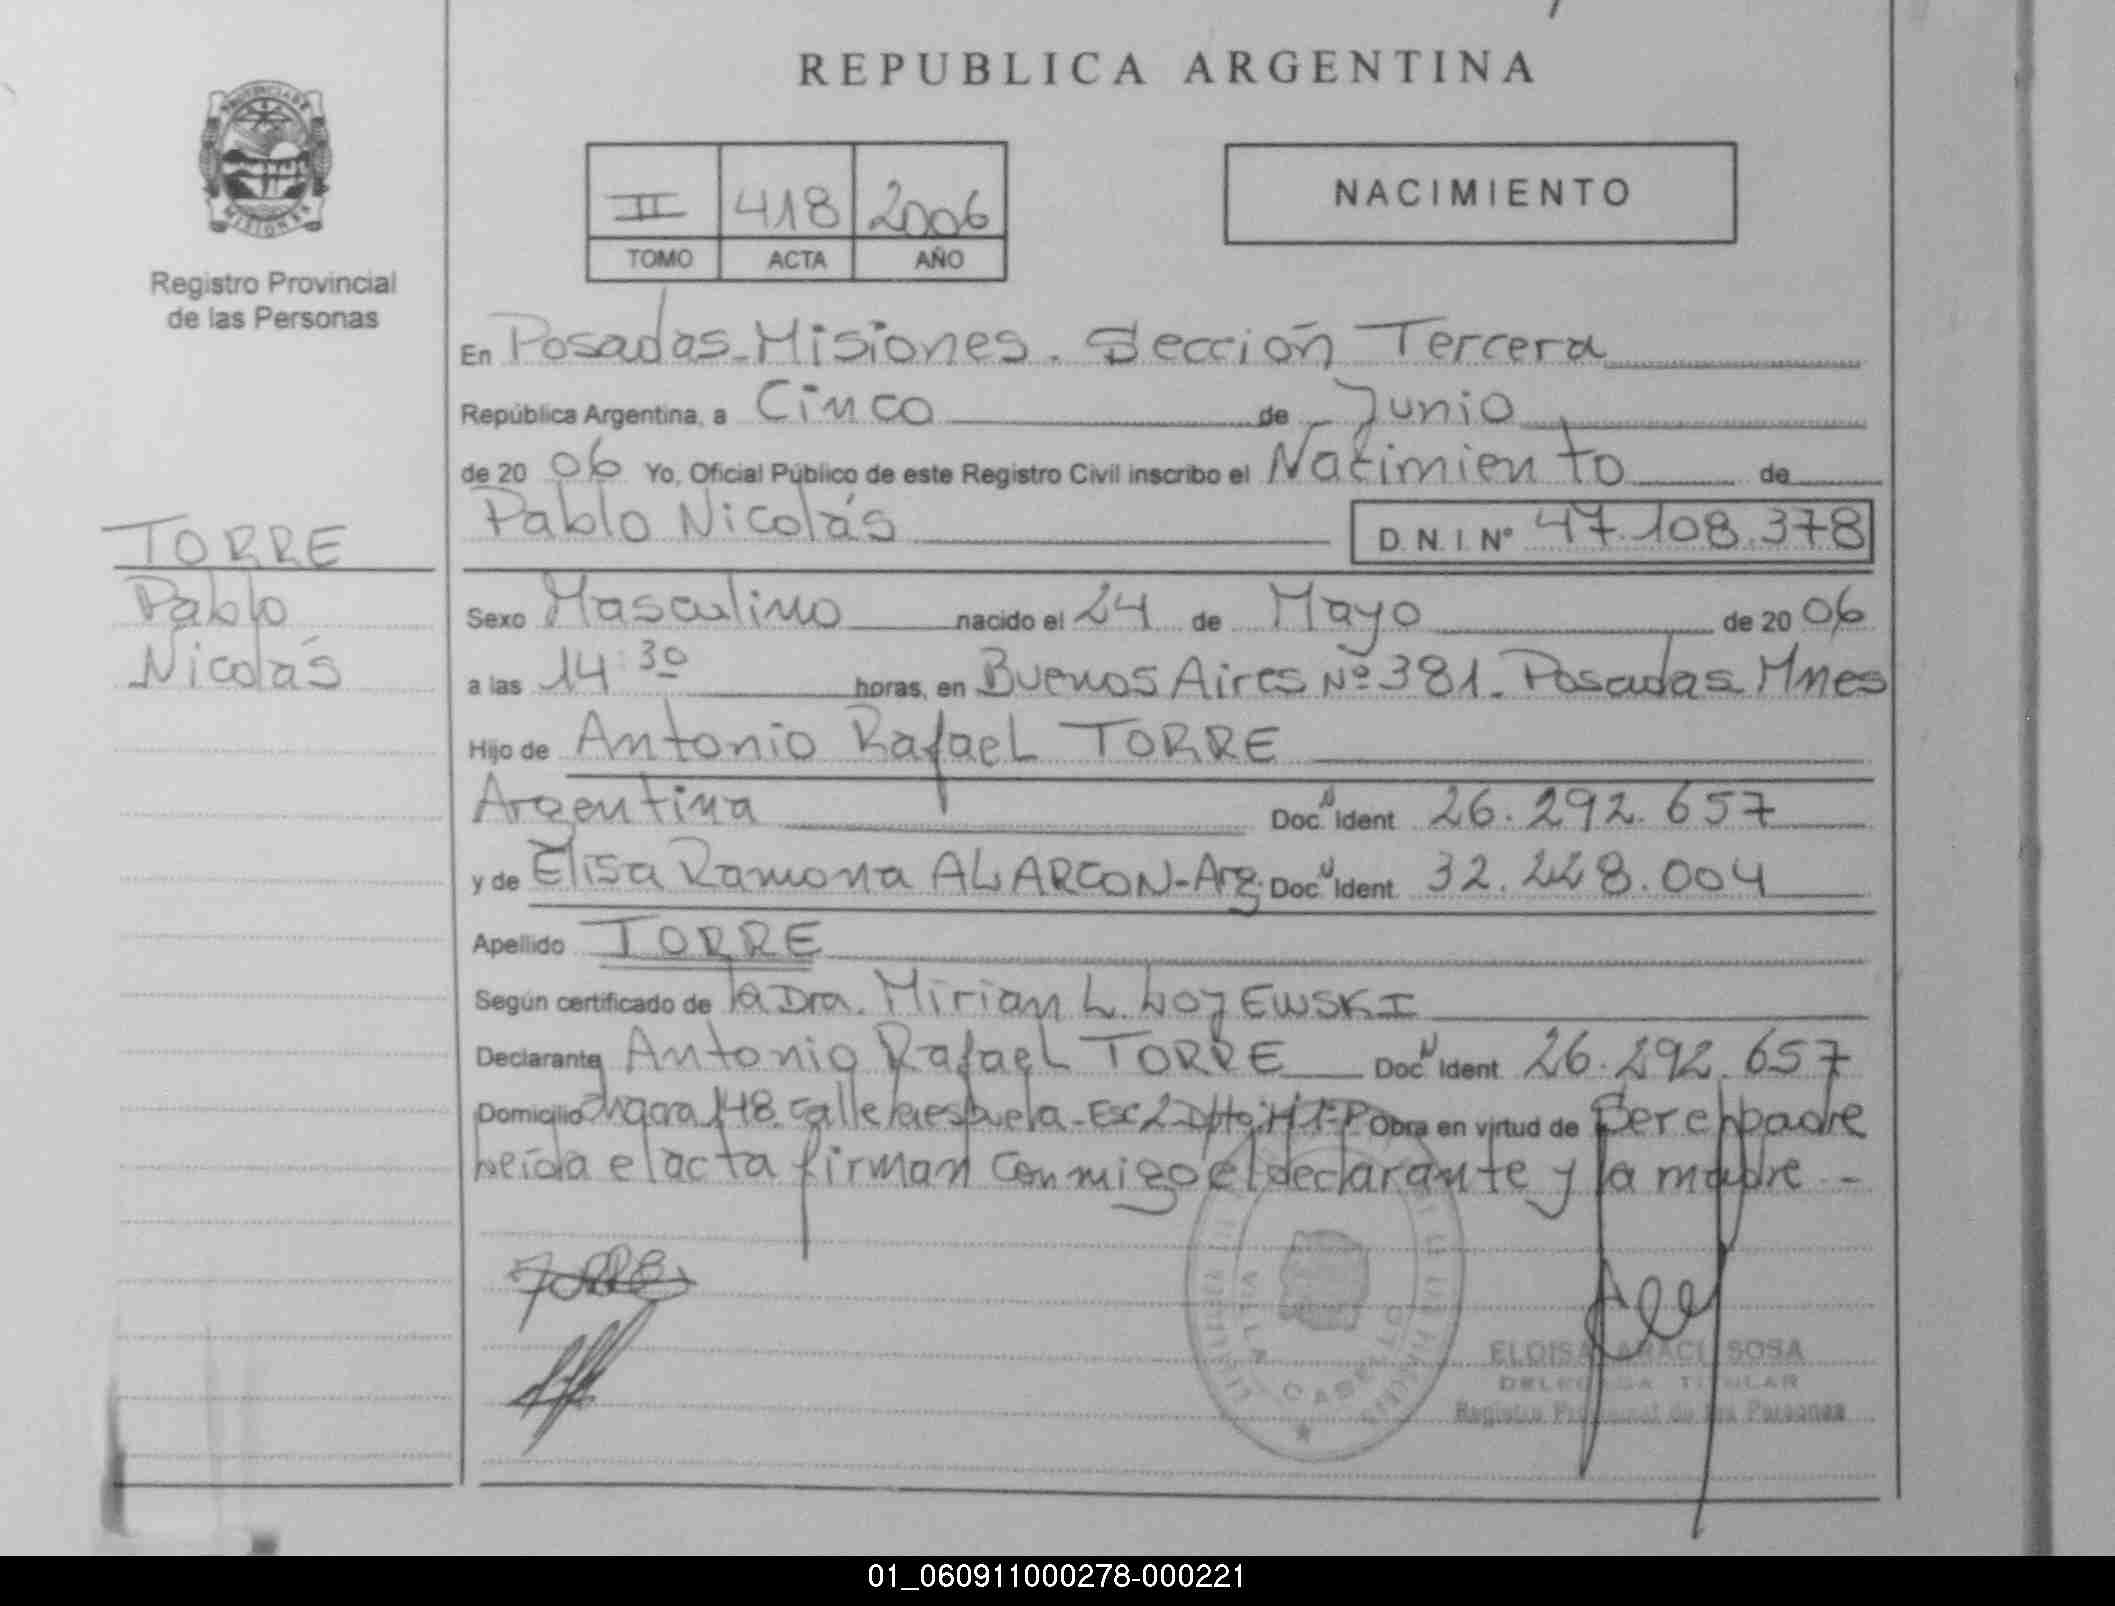 REPUBLICA ARGENTINA
PROVINCIA DE
MISIONES
Registro Provincial
de las Personas
II 418 2006
TOMO ACTA AÑO
NACIMIENTO
En Posadas-Misiones. Sección Tercera
República Argentina, a Cinco de Junio
de 2006 Yo, Oficial Público de este Registro Civil inscribo el Nacimiento de
Pablo Nicolás D.N.I. Nº 47.108.378
TORRE
Pablo
Nicolás
Sexo Masculino nacido el 24 de Mayo de 2006
a las 14:30 horas, en Buenos Aires Nº 381. Posadas Mnes
Hijo de Antonio Rafael TORRE
Argentina Doc. Ident 26.292.657
y de Elisa Ramona ALARCON-Arg. Doc. Ident 32.228.004
Apellido TORRE
Según certificado de la Dra. Mirian L. LOJEWSKI
Declarante Antonio Rafael TORRE Doc. Ident 26.292.657
Domicilio Chacra 148. calle Obra en virtud de Ser el padre
Leída el acta firman conmigo el declarante y la madre -
TORRE
VILLA CABELLO
ELOISA ARACI SOSA
DELEGADA TITULAR
Registro Provincial de las Personas
01_060911000278-000221